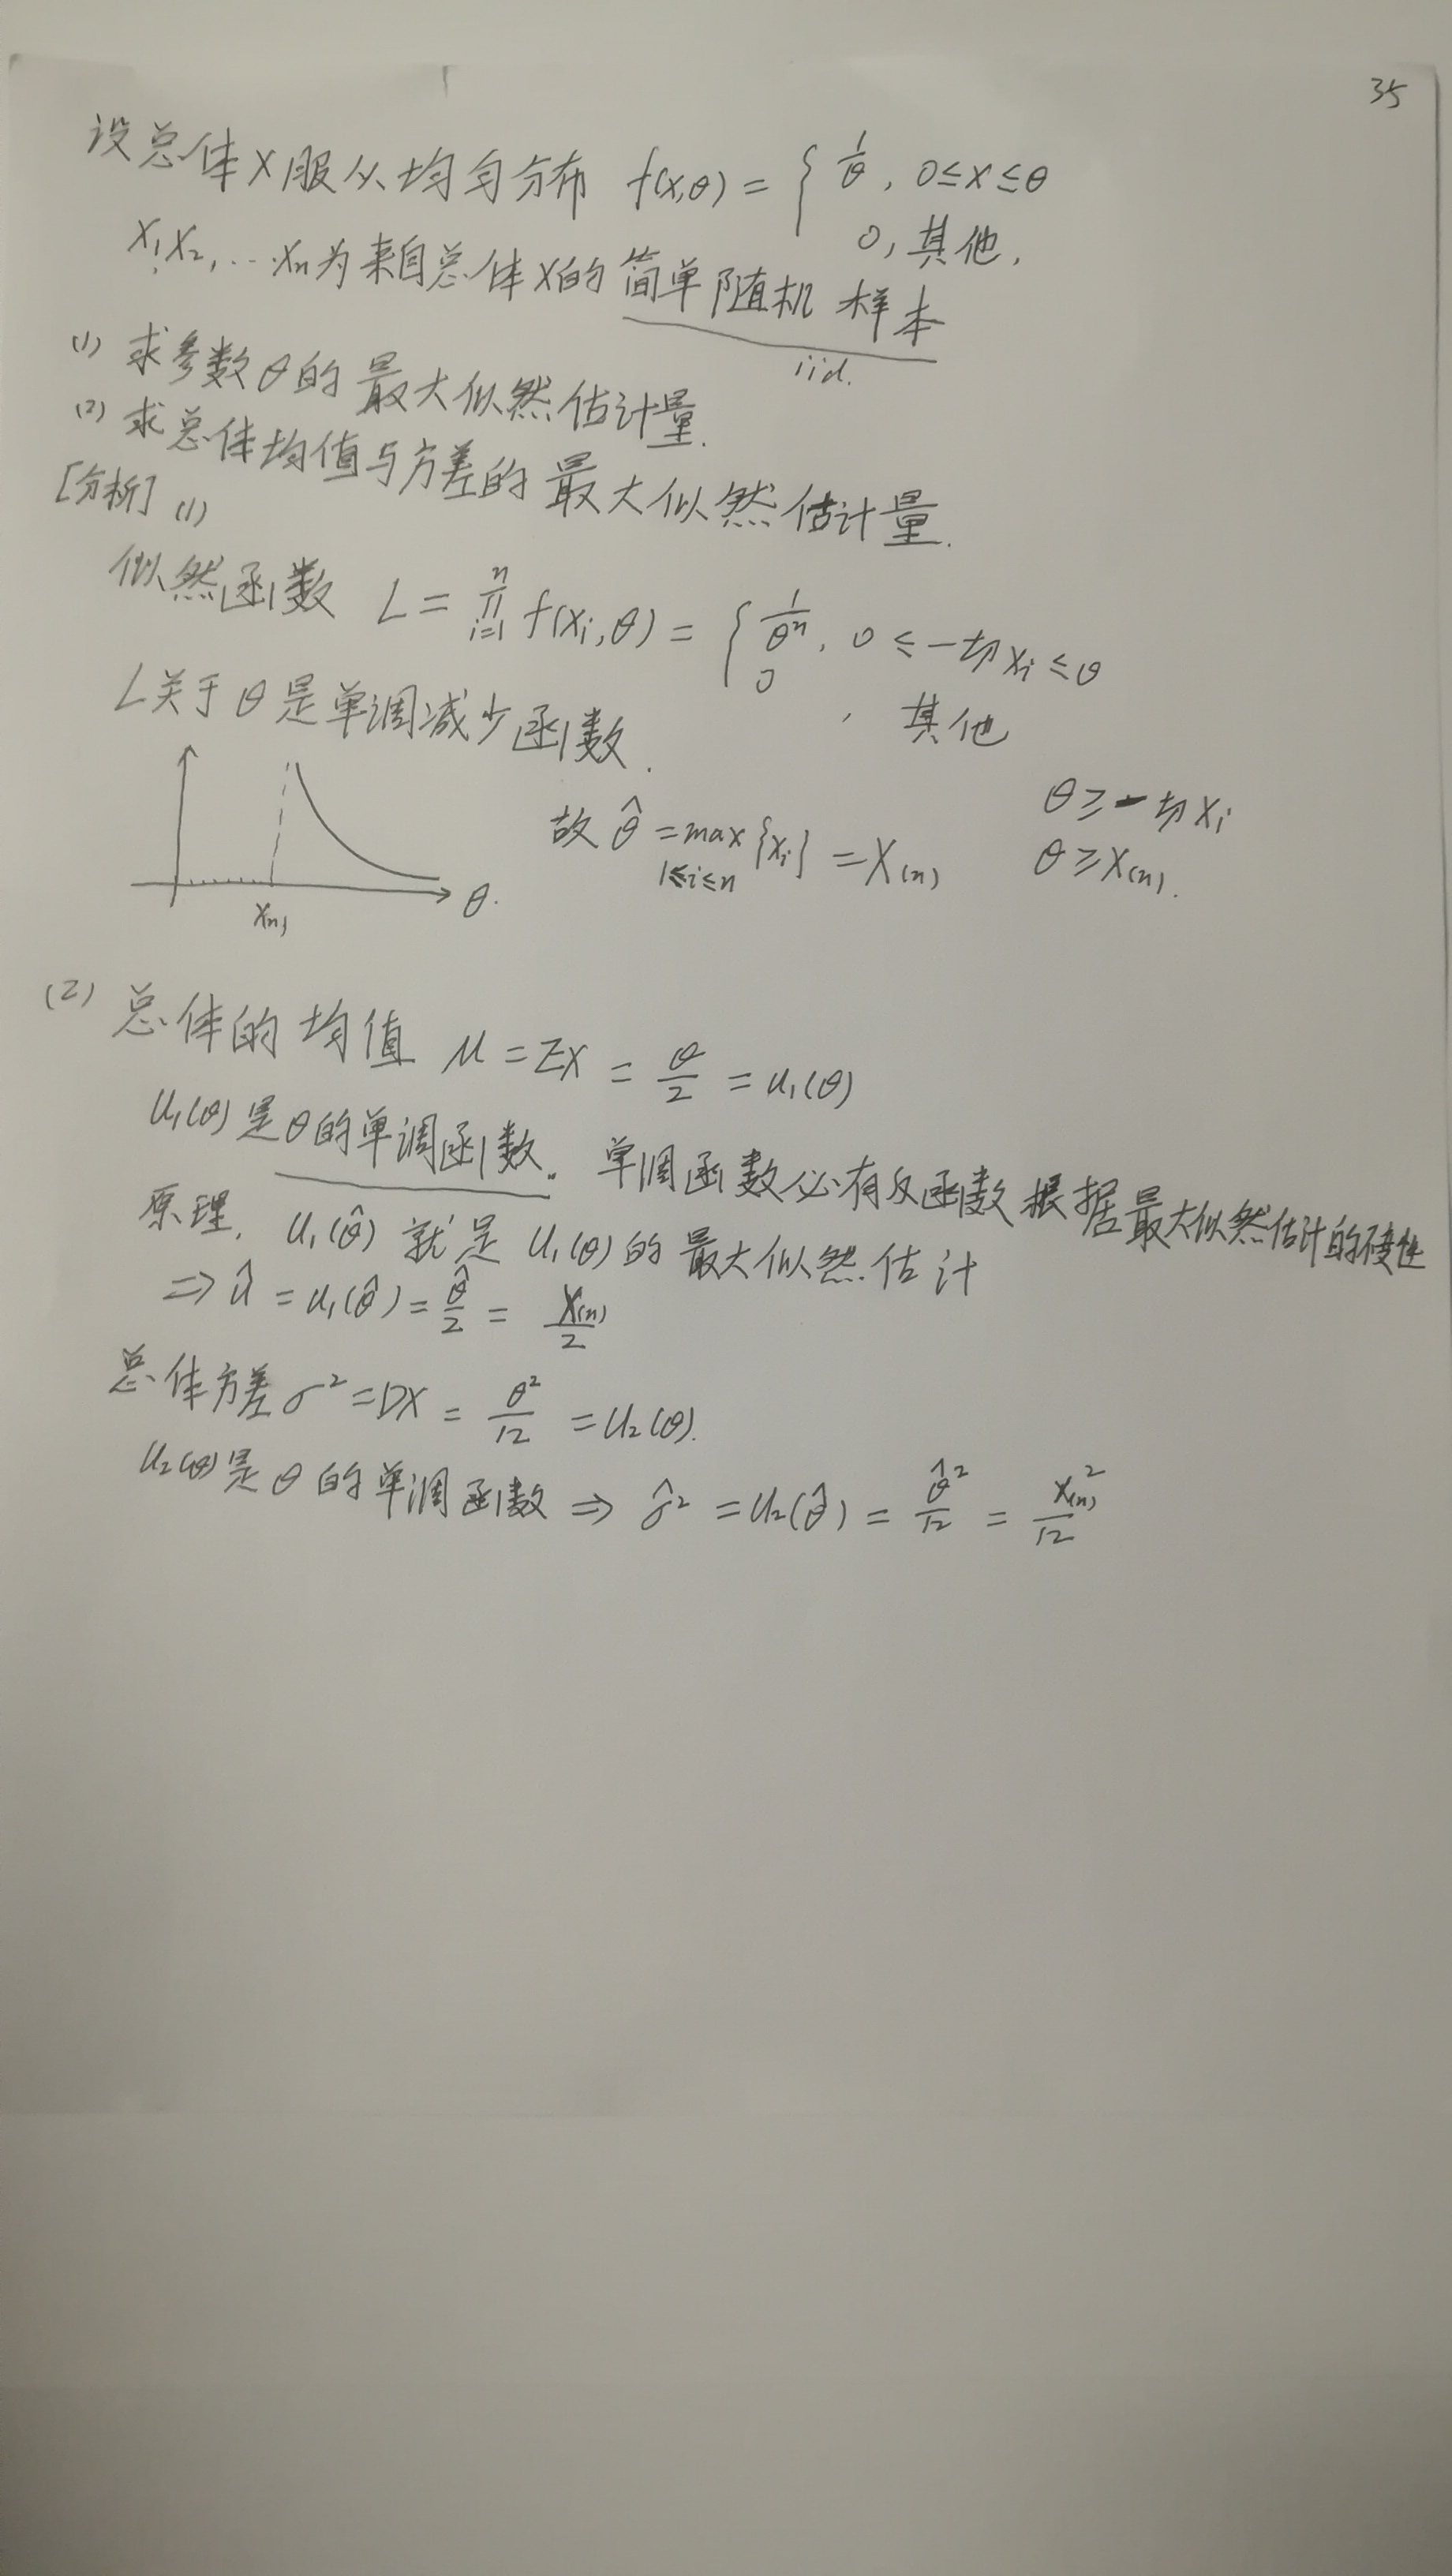 35
设总体X服从均匀分布 f(x,θ) = { 1/θ, 0≤x≤θ
0, 其他,
X₁,X₂,…Xn为来自总体X的简单随机样本
iid.
(1) 求参数θ的最大似然估计量.
(2) 求总体均值与方差的最大似然估计量.
[分析] (1)
似然函数 L = ∏ᵢ₌₁ⁿ f(xᵢ,θ) = { 1/θⁿ, 0 ≤ 一切xᵢ ≤ θ
0 , 其他
L关于θ是单调减少函数.
θ ≥ 一切xᵢ
故 θ̂ = max{xᵢ} = X₍ₙ₎
1≤i≤n
θ ≥ X₍ₙ₎.
θ.
X₍ₙ₎
(2) 总体的均值 μ = EX = θ/2 = u₁(θ)
u₁(θ)是θ的单调函数. 单调函数必有反函数 根据最大似然估计的
原理, u₁(θ̂) 就是 u₁(θ)的最大似然估计
⇒ û = u₁(θ̂) = θ̂/2 = X₍ₙ₎/2
总体方差σ² = DX = θ²/12 = u₂(θ).
u₂(θ)是θ的单调函数 ⇒ σ̂² = u₂(θ̂) = θ̂²/12 = X₍ₙ₎²/12